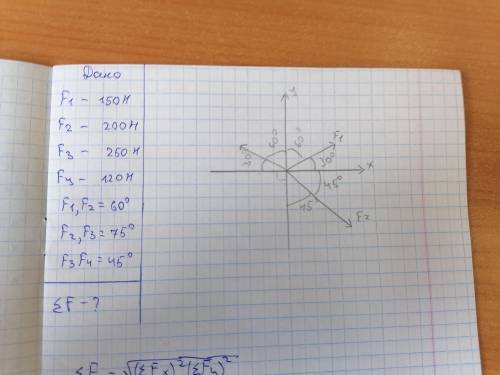 Дано
F1 - 150 Н
F2 - 200 Н
F3 - 250 Н
F4 - 120 Н
F1, F2 = 60°
F2, F3 = 75°
F3 F4 = 45°
ΣF - ?
ΣF = √(ΣFx)²(ΣFy)²
60°
60°
F1
30°
x
45°
45°
F2